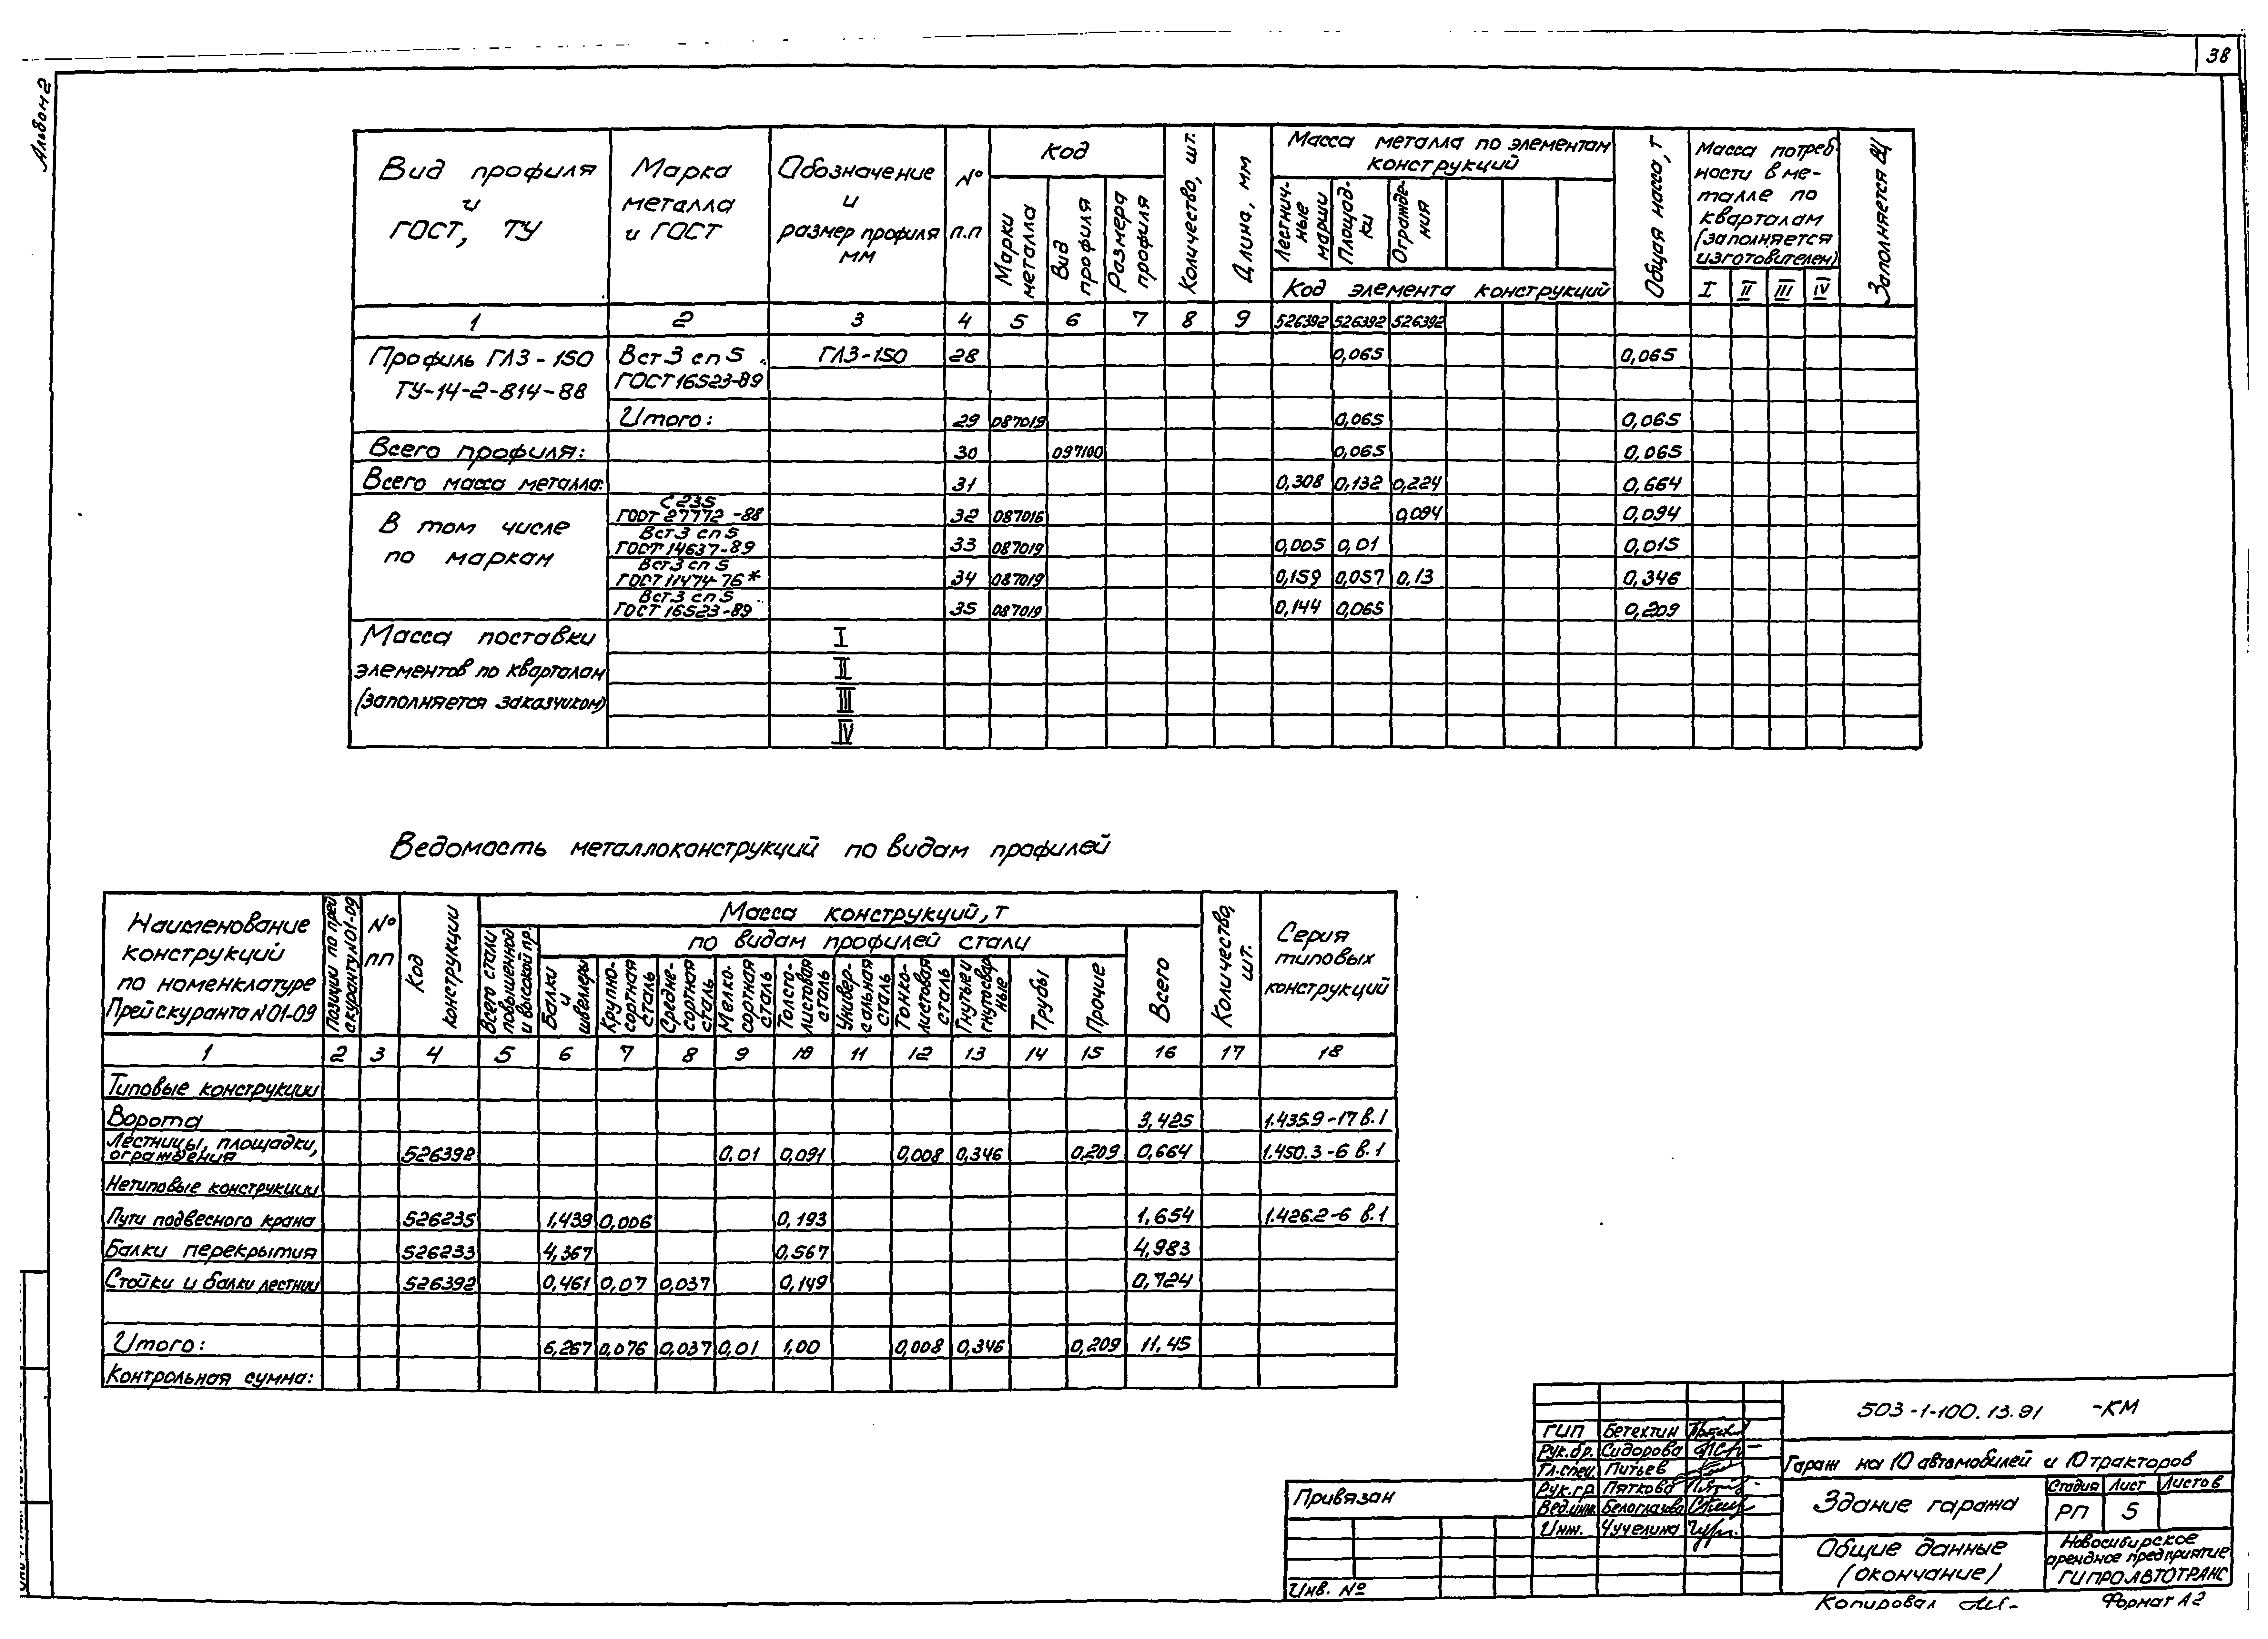 38
Альбом 2
Вид профиля и ГОСТ, ТУ
Марка металла и ГОСТ
Обозначение и размер профиля мм
№ п.п
Код
Марки металла
Вид профиля
Размера профиля
Количество, шт.
Длина, мм
Масса металла по элементам конструкций
Лестничные марши
Площадки
Ограждения
Код элемента конструкций
Общая масса, т
Масса потребности в металле по кварталам (заполняется изготовителем)
I II III IV
Заполняется ВЦ
1 2 3 4 5 6 7 8 9 526392 526392 526392
Профиль ГЛЗ-150 Вст3 сп5 ГЛЗ-150 28 0,065 0,065
ТУ-14-2-814-88 ГОСТ 16523-89
Итого: 29 087019 0,065 0,065
Всего профиля: 30 097100 0,065 0,065
Всего масса металла: 31 0,308 0,132 0,224 0,664
В том числе по маркам
С235
ГОСТ 27772-88 32 087016 0,094 0,094
Вст3 сп5
ГОСТ 14637-89 33 087019 0,005 0,01 0,015
Вст3 сп5
ГОСТ 11474-76* 34 087019 0,159 0,057 0,13 0,346
Вст3 сп5
ГОСТ 16523-89 35 087019 0,144 0,065 0,209
Масса поставки I
элементов по кварталам II
(заполняется заказчиком) III
IV
Ведомость металлоконструкций по видам профилей
Наименование конструкций по номенклатуре Прейскуранта N01-09
Позиции по прейскуранту N01-09
№ пп
Код конструкции
Масса конструкций, т
Всего стали повышенной и высокой пр.
по видам профилей стали
Балки и швеллеры
Крупносортная сталь
Среднесортная сталь
Мелкосортная сталь
Толстолистовая сталь
Универсальная сталь
Тонколистовая сталь
Гнутые и гнутосварные
Трубы
Прочие
Всего
Количество, шт.
Серия типовых конструкций
1 2 3 4 5 6 7 8 9 10 11 12 13 14 15 16 17 18
Типовые конструкции
Ворота 3,425 1.435.9-17 в.1
Лестницы, площадки,
ограждения 526392 0,01 0,091 0,008 0,346 0,209 0,664 1.450.3-6 в.1
Нетиповые конструкции
Пути подвесного крана 526235 1,439 0,006 0,193 1,654 1.426.2-6 в.1
Балки перекрытия 526233 4,367 0,567 4,983
Стойки и балки лестниц 526392 0,461 0,07 0,037 0,149 0,724
Итого: 6,267 0,076 0,037 0,01 1,00 0,008 0,346 0,209 11,45
Контрольная сумма:
503-1-100.13.91 -КМ
Гараж на 10 автомобилей и 10 тракторов
ГИП Бетехтин
Рук.бр. Сидорова
Гл.спец. Питьев
Рук.гр. Пяткова
Вед.инж. Белоглазова
Инж. Чучелина
Здание гаража
Стадия Лист Листов
РП 5
Общие данные
(окончание)
Новосибирское
арендное предприятие
ГИПРОАВТОТРАНС
Привязан
Инв. №
Копировал
Формат А2